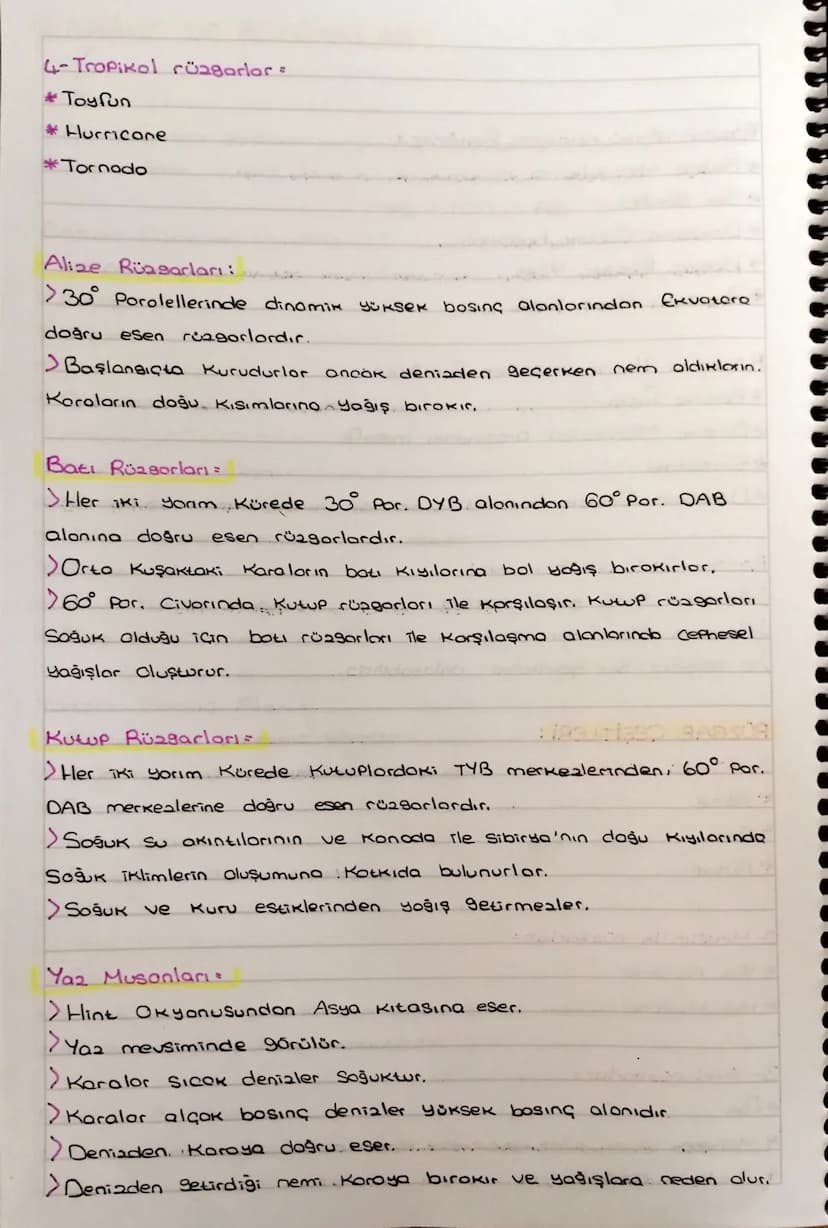 4-Tropikal rüzgarlar=
* Tayfun
* Hurricane
* Tornado
Alize Rüzgarları:
> 30° Paralellerinde dinamik yüksek basınç alanlarından Ekvatora
doğru esen rüzgarlardır.
> Başlangıçta kurudurlar ancak denizden geçerken nem aldıkların.
Karaların doğu kısımlarına yağış bırakır.
Batı Rüzgarları=
> Her iki yarım kürede 30° Par. DYB alanından 60° Par. DAB
alanına doğru esen rüzgarlardır.
> Orta Kuşaktaki karaların batı kıyılarına bol yağış bırakırlar.
> 60° Par. Civarında kutup rüzgarları ile karşılaşır. Kutup rüzgarları
Soğuk olduğu için batı rüzgarları ile karşılaşma alanlarında cephesel
yağışlar oluşturur.
Kutup Rüzgarları=
> Her iki yarım Kürede Kutuplardaki TYB merkezlerinden, 60° Par.
DAB merkezlerine doğru esen rüzgarlardır.
> Soğuk su akıntılarının ve Kanada ile Sibirya'nın doğu kıyılarında
Soğuk iklimlerin oluşumuna katkıda bulunurlar.
> Soğuk ve kuru estiklerinden yağış getirmezler.
Yaz Musonları=
> Hint Okyanusundan Asya kıtasına eser.
> Yaz mevsiminde görülür.
> Karalar sıcak denizler soğuktur.
> Karalar alçak basınç denizler yüksek basınç alanıdır
> Denizden Karaya doğru eser.
> Denizden getirdiği nemi Karaya bırakır ve yağışlara neden olur.